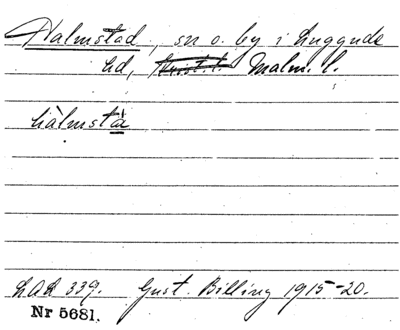 Halmstad, sn o. by i Luggude
hd, Krist. l. Malm. l.
hàlmstà
LAL 339. Gust. Billing 1915-20.
Nr 5681.